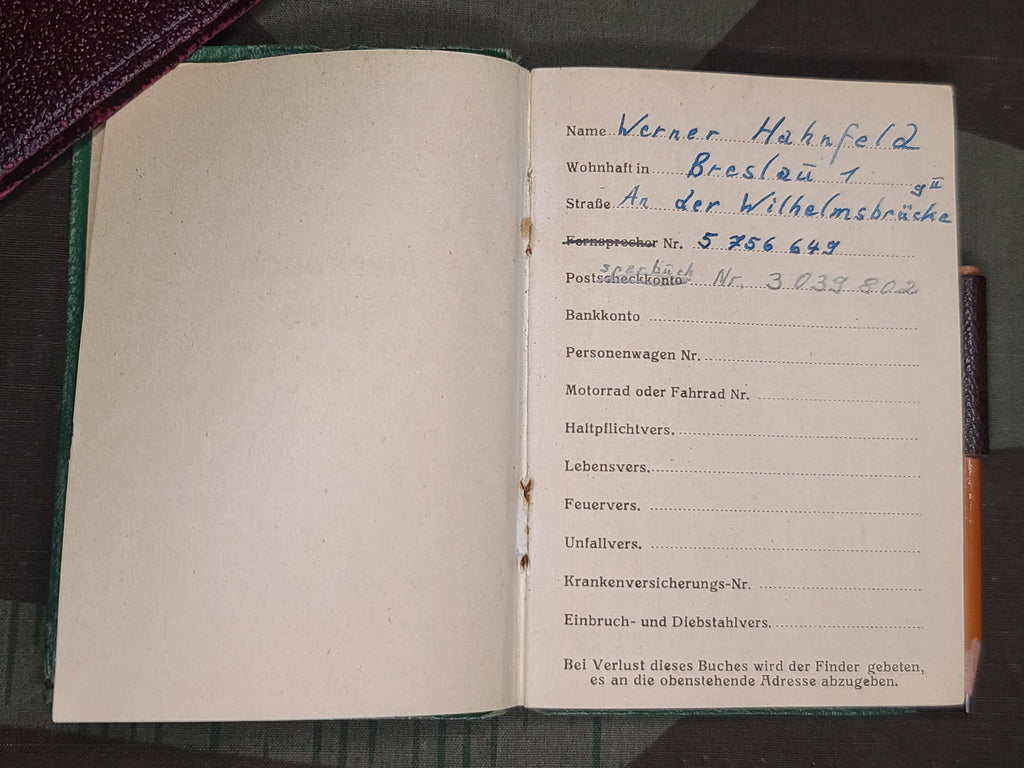 Name Werner Hahnfeld
Wohnhaft in Breslau 1
Straße An der Wilhelmsbrücke 9 II
Fernsprecher Nr. 5 756 649
sparbuch
Postsscheckkonto Nr. 3 039 802
Bankkonto
Personenwagen Nr.
Motorrad oder Fahrrad Nr.
Haftpflichtvers.
Lebensvers.
Feuervers.
Unfallvers.
Krankenversicherungs-Nr.
Einbruch- und Diebstahlvers.
Bei Verlust dieses Buches wird der Finder gebeten,
es an die obenstehende Adresse abzugeben.